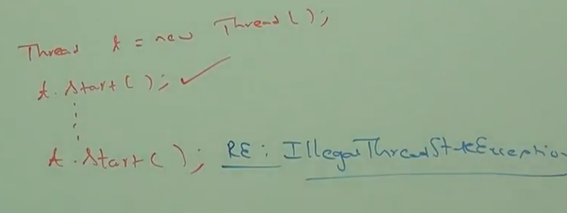 Thread t = new Thread();
t.start();
t.start(); RE: IllegalThreadStateException